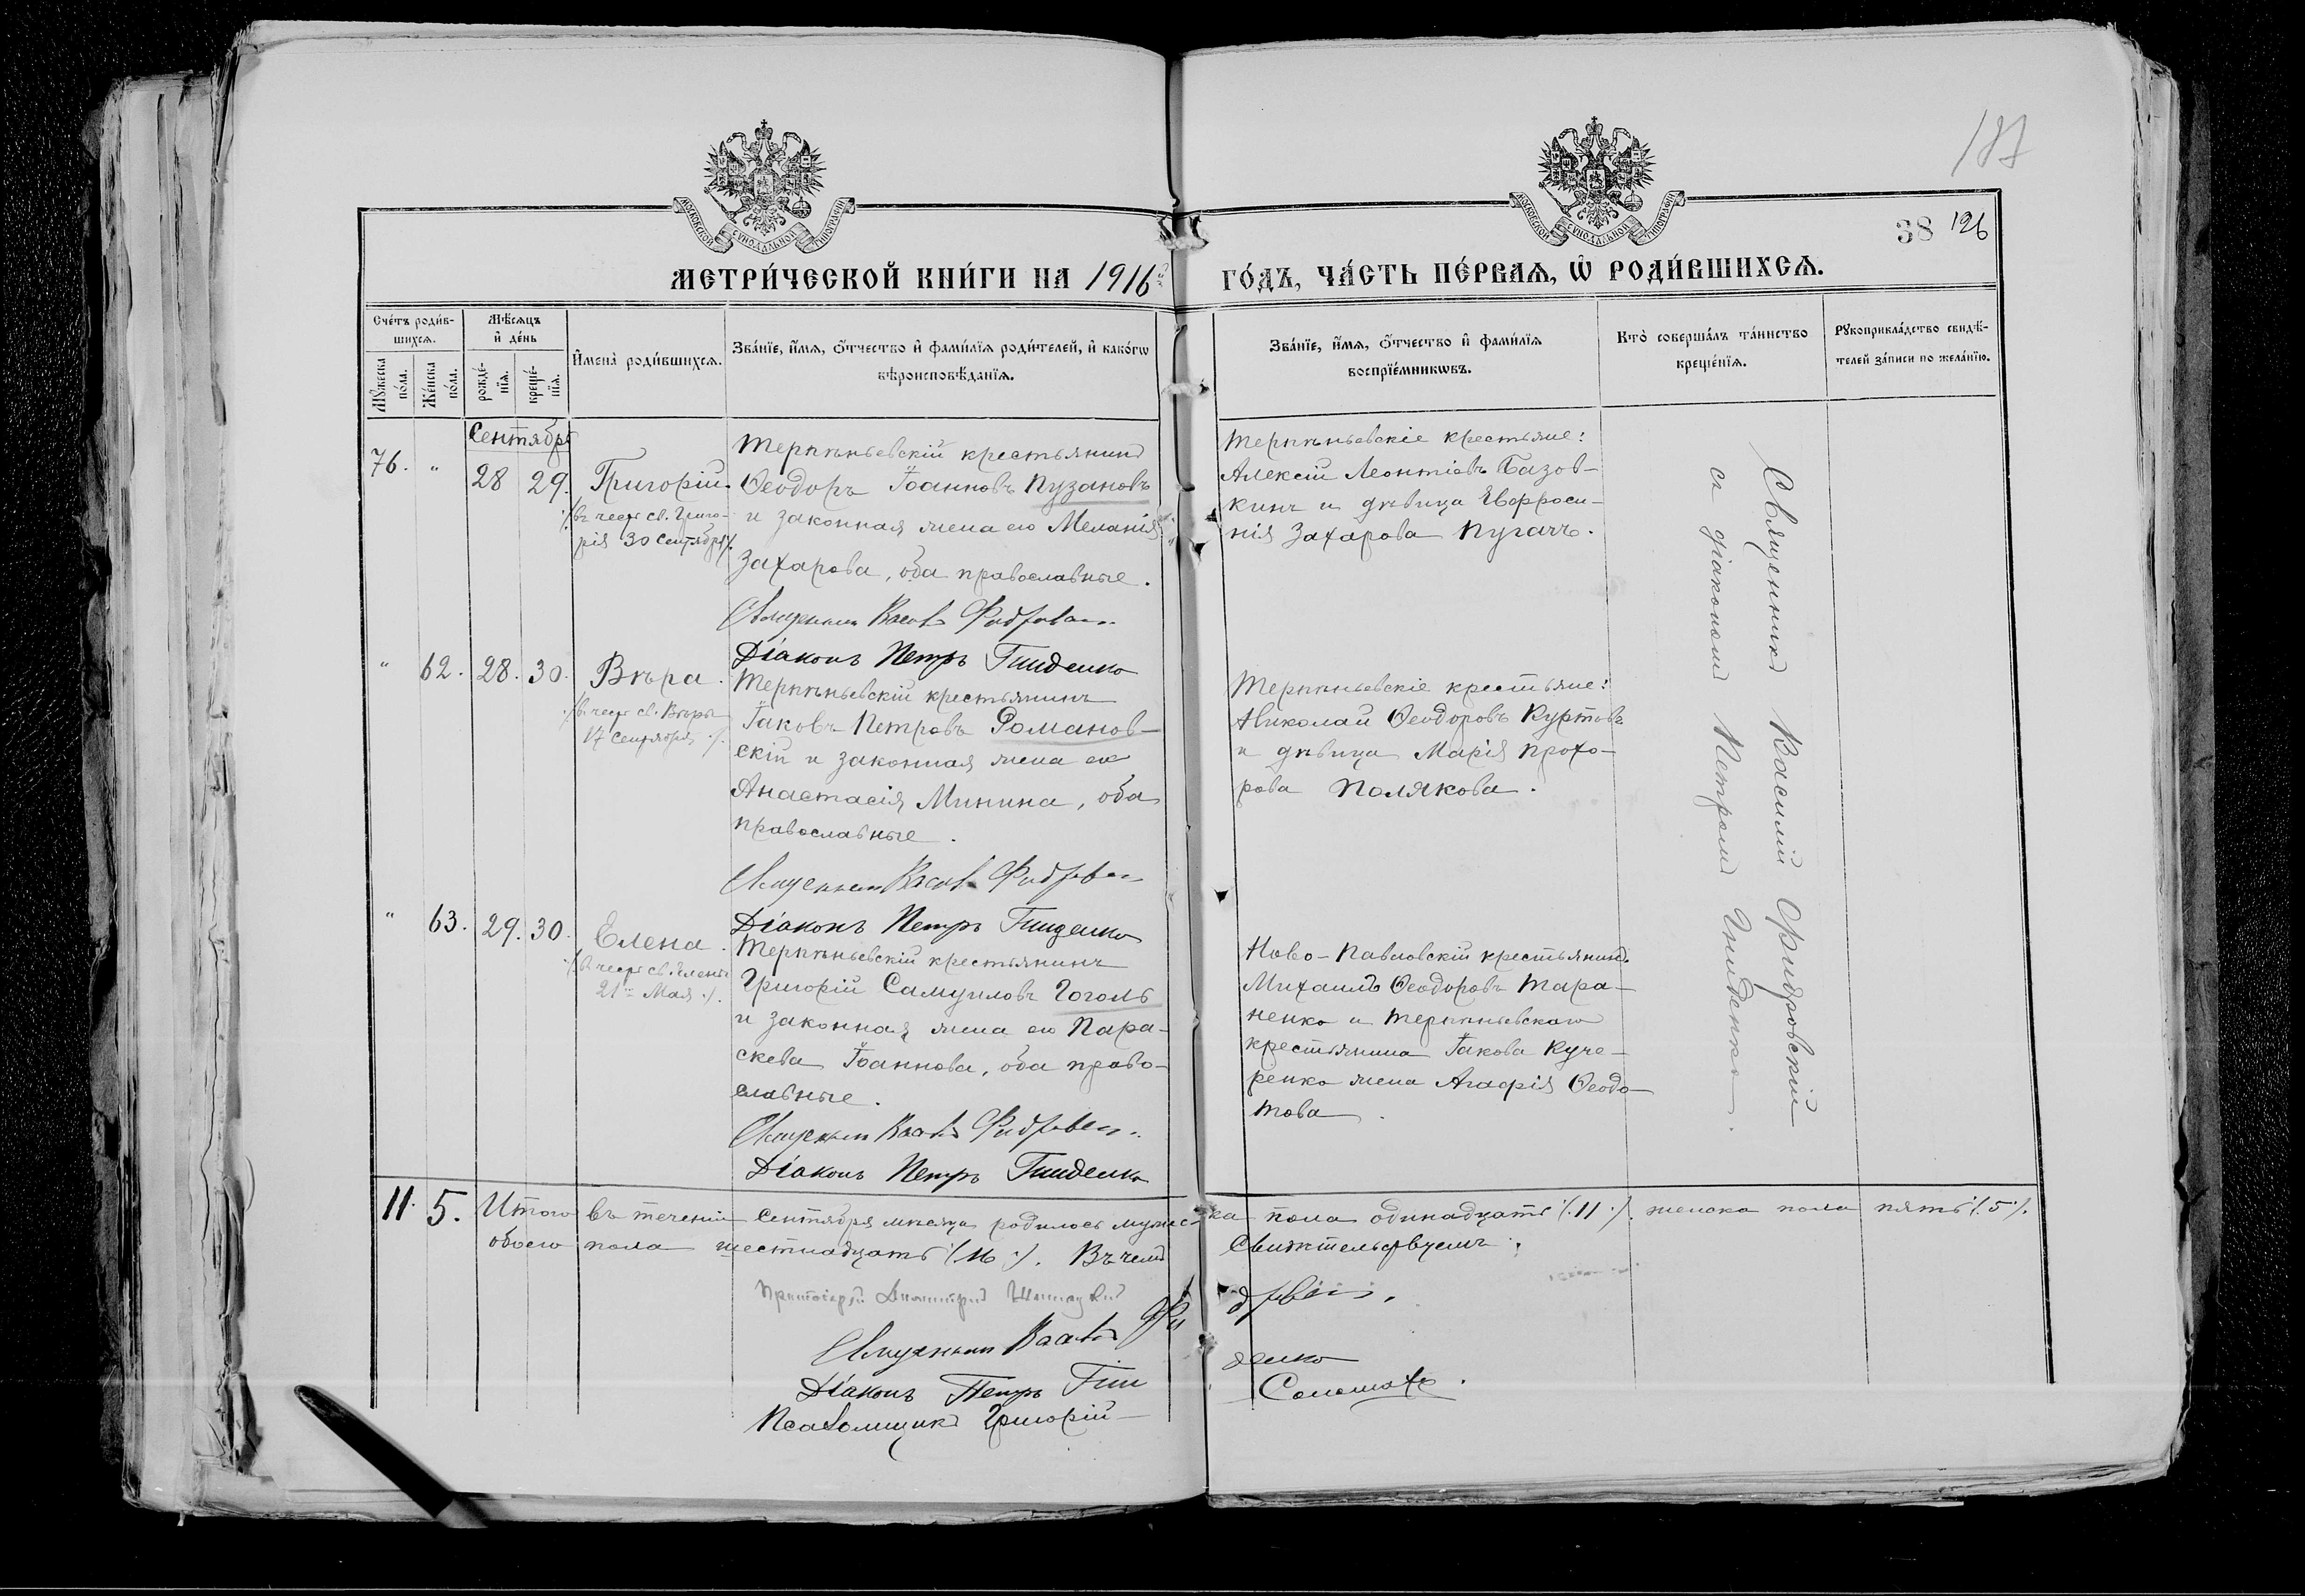 187
МОСКОВСКОЙ СУНОДАЛЬНОЙ ТИПОГРАФІИ
МОСКОВСКОЙ СУНОДАЛЬНОЙ ТИПОГРАФІИ
38 126
МЕТРИ́ЧЕСКОЙ КНИ́ГИ НА 1916 й
ГО́ДЪ, ЧА́СТЬ ПЕ́РВАЯ, Ѿ РОДИ́ВШИХСЯ.
Сче́тъ роди́в-
шихся.
Мꙋ́жеска
по́ла.
Же́нска
по́ла.
Мѣ́сяцъ
и҆ де́нь
рожде́-
нїя.
креще́-
нїя.
И҆мена̀ роди́вшихся.
Зва́нїе, и҆́мя, о҆́тчество и҆ фами́лїя роди́телей, и҆ како́гѡ
вѣроисповѣ́данїя.
Зва́нїе, и҆́мя, о҆́тчество и҆ фами́лїя
воспрїе́мникѡвъ.
Кто̀ соверша́лъ та́инство
креще́нїя.
Рꙋкоприкла́дство свидѣ́-
телей за́писи по жела́нїю.
Сентябрь
76. " 28 29. Григорій.
/въ честь св. Григо-
рія 30 Сентября/.
Терпѣньевскій крестьянинъ
Ѳеодоръ Іоанновъ Пузановъ
и законная жена его Меланія
Захарова, оба православные.
Священникъ Васил
Діаконъ Петръ Гниденко
Терпѣньевскіе крестьяне:
Алексій Леонтіевъ Базов-
кинъ и дѣвица Евфроси-
нія Захарова Пугачъ.
Священникъ Василій Фидровскій
съ діакономъ Петромъ Гниденко.
" 62. 28. 30. Вѣра.
/въ честь св. Вѣры
17 Сентября./
Терпѣньевскій крестьянинъ
Іаковъ Петровъ Романов-
скій и законная жена его
Анастасія Минина, оба
православные.
Священникъ Васил
Діаконъ Петръ Гниденко
Терпѣньевскіе крестьяне:
Николай Ѳеодоровъ Куртовъ
и дѣвица Марія Прохо-
рова Полякова.
" 63. 29. 30. Елена.
/въ честь св. Елены
21 Мая./
Терпѣньевскій крестьянинъ
Григорій Самуиловъ Гоголь
и законная жена его Пара-
скева Іоаннова, оба право-
славные.
Священникъ Васил
Діаконъ Петръ Гниденко
Ново-Павловскій крестьянинъ
Михаилъ Ѳеодоровъ Тара-
ненко и терпѣньевскаго
крестьянина Іакова Куче-
ренко жена Агафія Ѳеодо-
това.
11. 5. Итого въ теченіи Сентября мѣсяца родилось мужес-ка пола одинадцать /.11./. женска пола пять /.5./.
обоего пола шестнадцать /.16./. Въ чемъ Свидѣтельствуемъ:
Протоіерей Димитрій
Священникъ Васил
Діаконъ Петръ Гниденко
Псаломщикъ Григорій